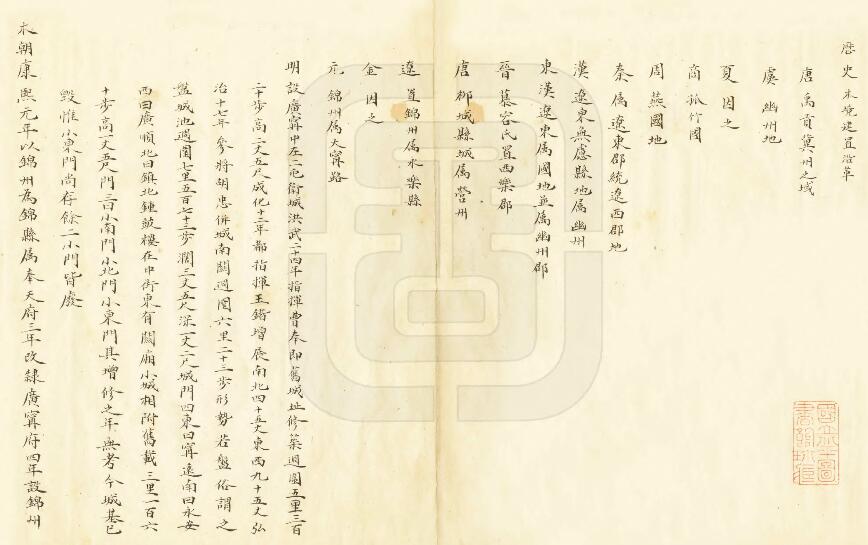 歷史本境建置沿革
唐禹貢冀州之域
虞幽州地
夏因之
商孤竹國
周燕國地
秦屬遼東郡統遼西郡地
漢遼東無慮縣地屬幽州
東漢遼東屬國地並屬幽州郡
晉慕容氏置西樂郡
唐柳城縣城屬營州
遼置錦州屬永樂縣
金因之
元錦州屬大寧路
明設廣寧中左二屯衛城洪武二十四年指揮曹奉即舊城址修築週圍五里三百
二十步高二丈五尺成化十二年都指揮王鍇增展南北四十五丈東西九十五丈弘
治十七年參將胡忠併城南關週圍六里二十三步形勢若盤俗謂之
盤城池週圍七里五百七十三步濶三丈五尺深一丈二尺城門四東曰寧遠南曰永安
西曰廣順北曰鎮北鐘皷樓在中街東有關廂小城相附舊載三里一百六
十步高一丈五尺門三曰小南門小北門小東門其增修之年無考今城基已
毀惟小東門尚存餘二小門皆廢
本朝康熙元年以錦州為錦縣屬奉天府三年改隸廣寧府四年設錦州